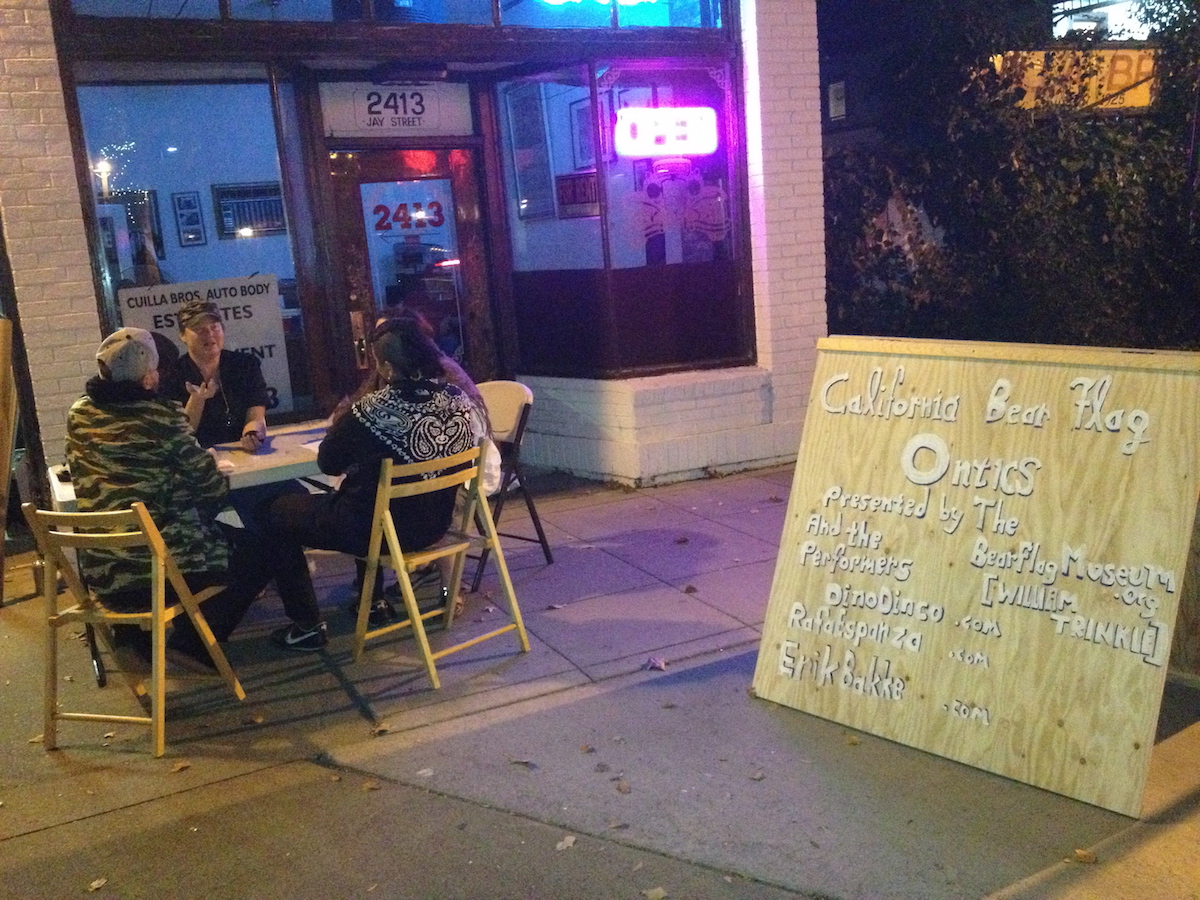 2413
JAY STREET
OPEN
2413
CUILLA BROS. AUTO BODY
California Bear Flag
Ontics
Presented by The
BearFlagMuseum
.org
[William
Trinkle]
And the
Performers
DinoDinco .com
Rafaespanza .com
ErikBakke .com